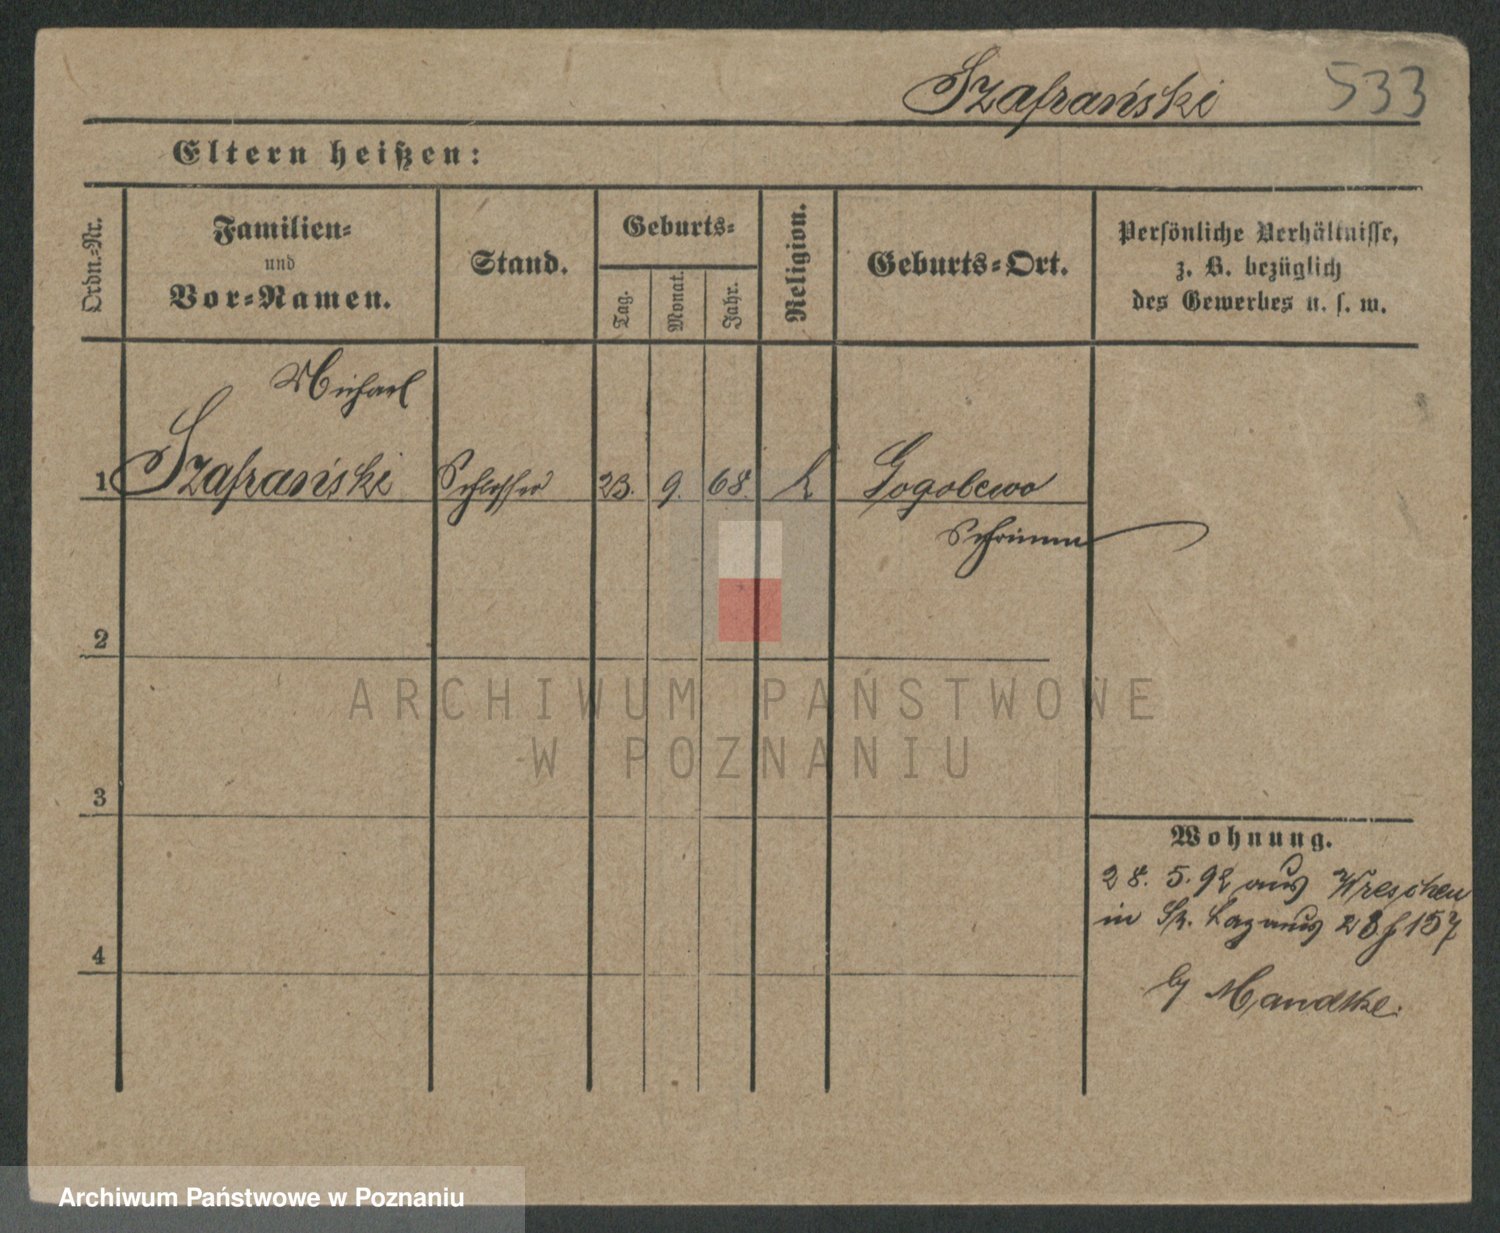 Szafrański 533
Eltern heißen:
Ordn.-Nr.
Familien-
und
Vor-Namen.
Stand.
Geburts-
Tag.
Monat.
Jahr.
Religion.
Geburts-Ort.
Persönliche Verhältnisse,
z. B. bezüglich
des Gewerbes u. s. w.
Michael
1 Szafrański Schlosser 23. 9. 68. k Gogolewo
Schrimm
2
3
4
Wohnung.
28. 5. 92 aus Wreschen
in St. Lazarus 157
Mandtke.
ARCHIWUM PAŃSTWOWE
W POZNANIU
Archiwum Państwowe w Poznaniu